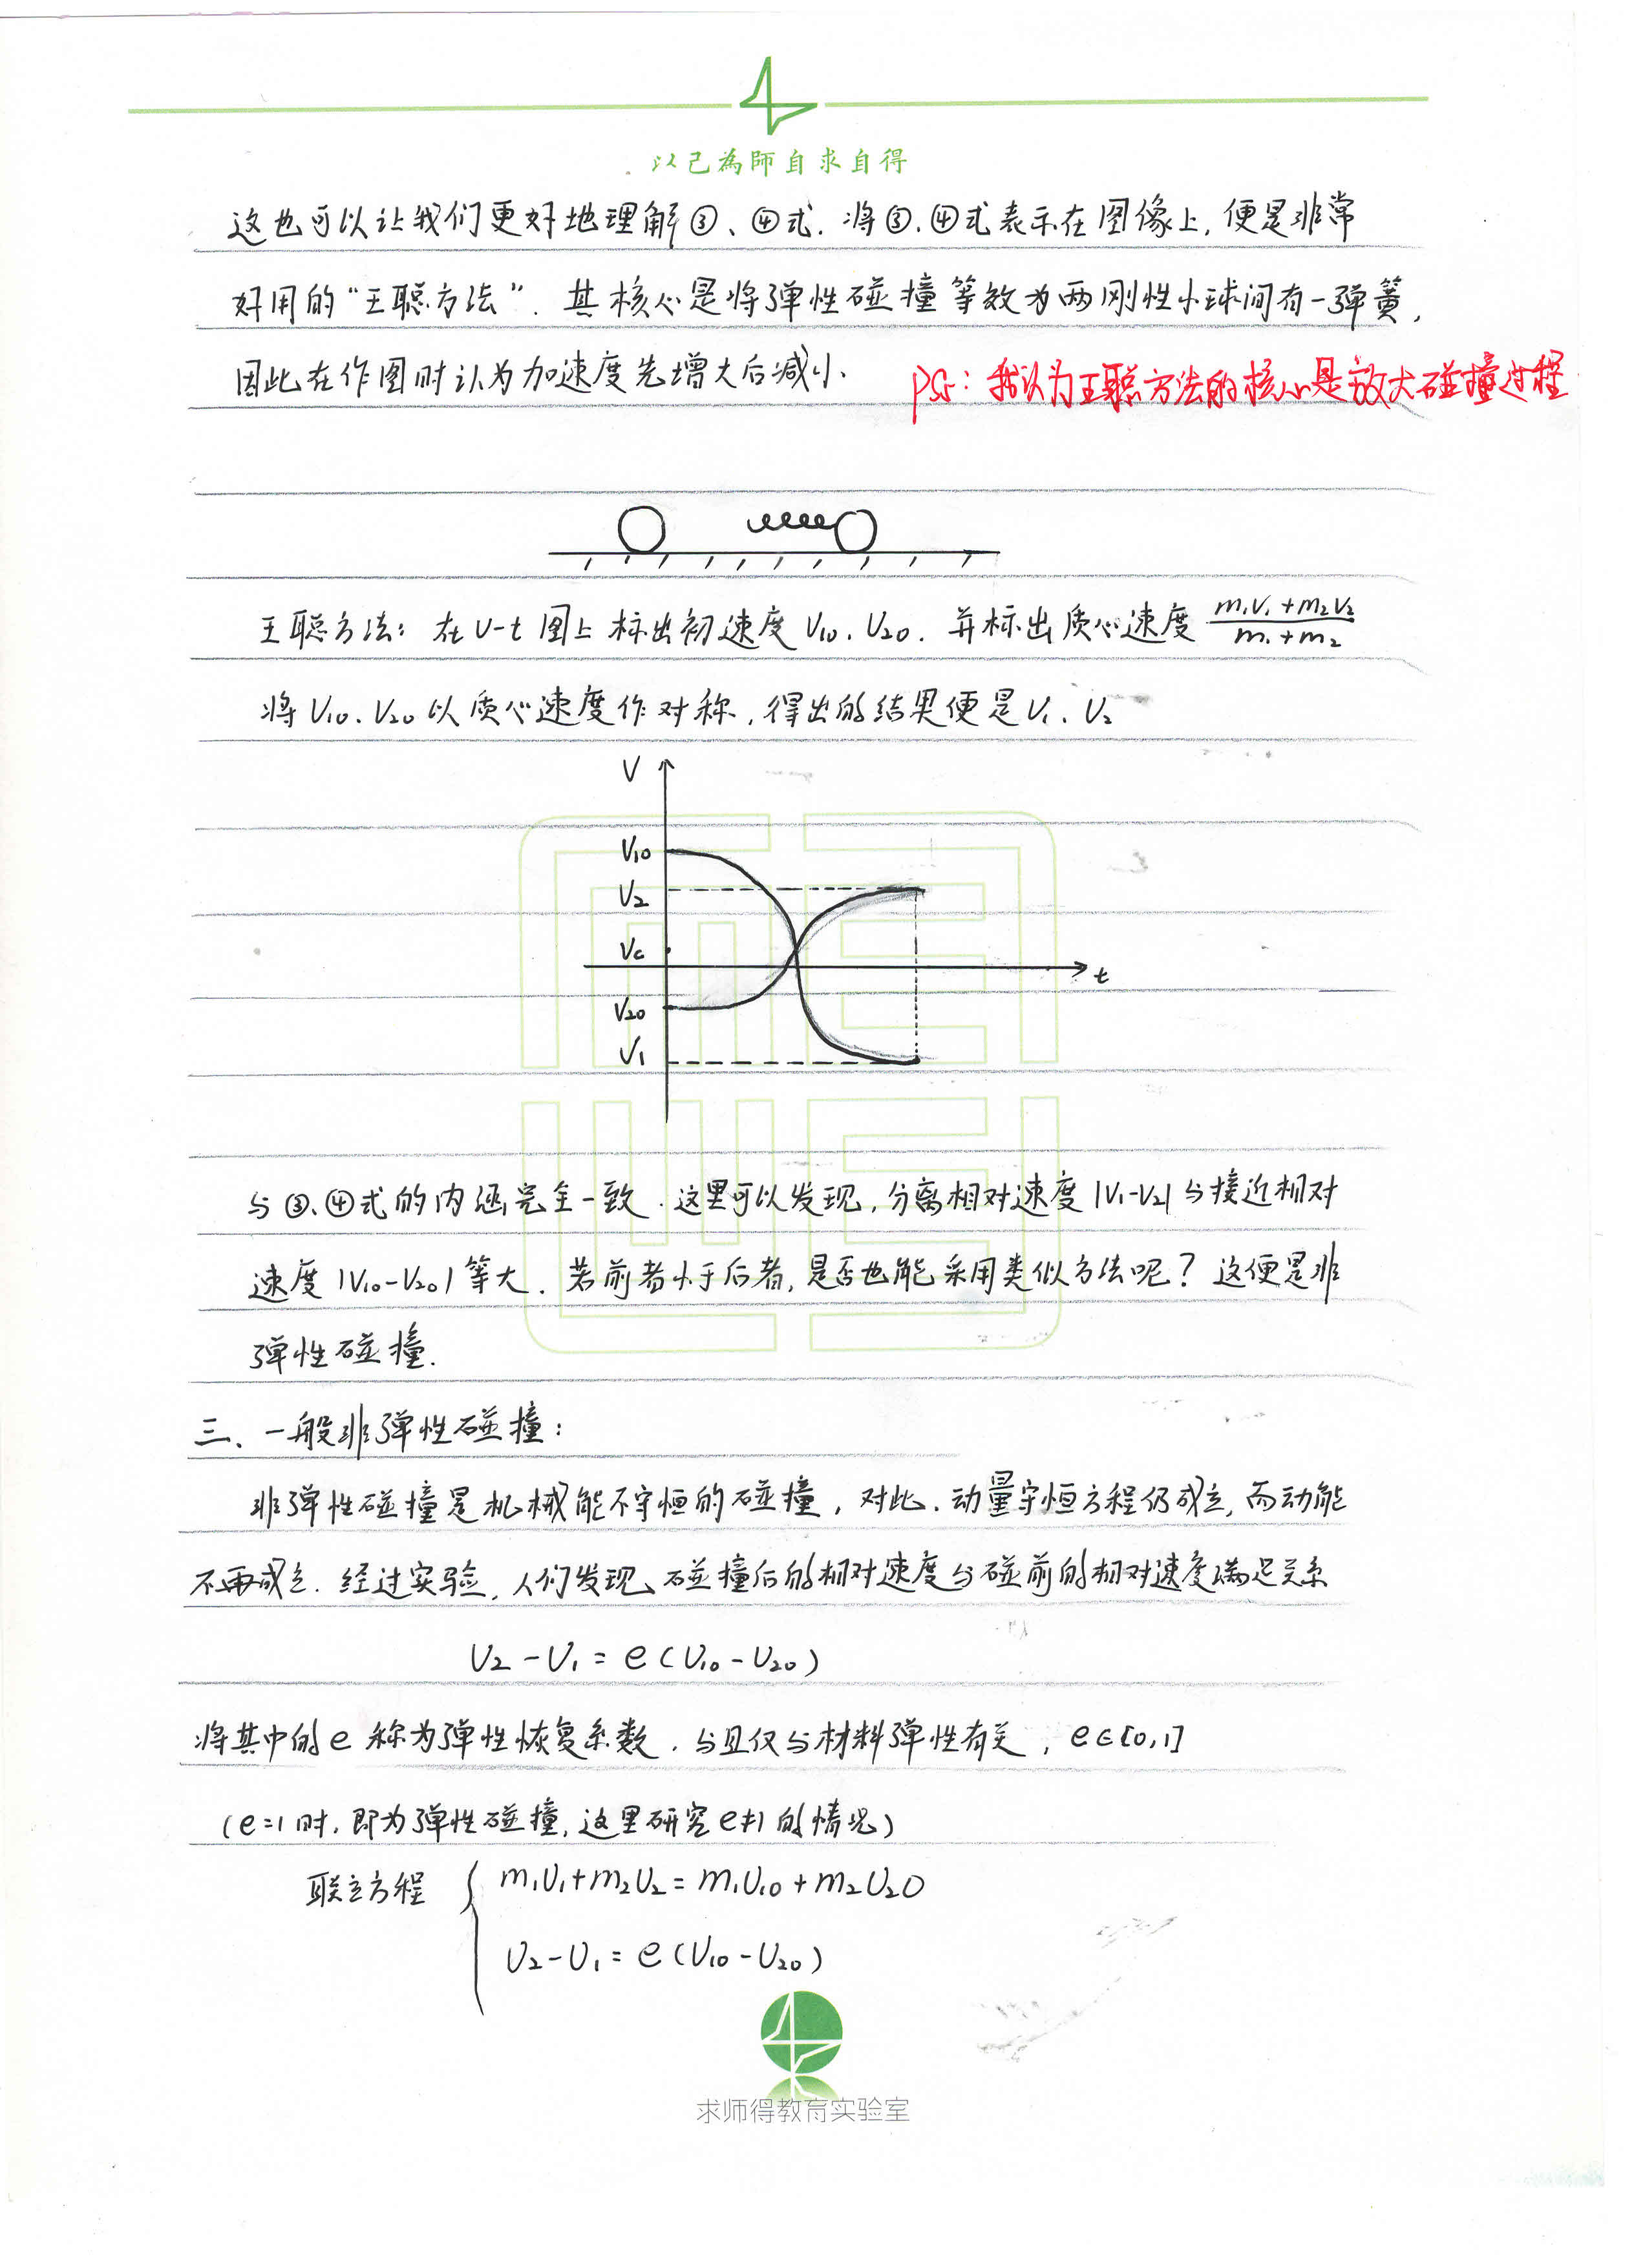 以己為師自求自得
这也可以让我们更好地理解③、④式. 将③、④式表示在图像上, 便是非常
好用的“王聪方法”. 其核心是将弹性碰撞等效为两刚性小球间有一弹簧,
因此在作图时认为加速度先增大后减小.
PS: 我认为王聪方法的核心是放大碰撞过程
王聪方法: 在V-t图上标出初速度V₁₀、V₂₀. 并标出质心速度 (m₁V₁+m₂V₂)/(m₁+m₂)
将V₁₀、V₂₀以质心速度作对称, 得出的结果便是V₁、V₂
V
V₁₀
V₂
Vc
t
V₂₀
V₁
与③、④式的内涵完全一致. 这里可以发现, 分离相对速度|V₁-V₂|与接近相对
速度|V₁₀-V₂₀|等大. 若前者小于后者, 是否也能采用类似方法呢? 这便是非
弹性碰撞.
三、一般非弹性碰撞:
非弹性碰撞是机械能不守恒的碰撞, 对此, 动量守恒方程仍成立, 而动能
不再成立. 经过实验, 人们发现, 碰撞后的相对速度与碰前的相对速度满足关系
V₂-V₁=e(V₁₀-V₂₀)
将其中的e称为弹性恢复系数. 与且仅与材料弹性有关, e∈[0,1]
(e=1时, 即为弹性碰撞, 这里研究e≠1的情况)
联立方程 { m₁V₁+m₂V₂=m₁V₁₀+m₂V₂₀
V₂-V₁=e(V₁₀-V₂₀)
求师得教育实验室